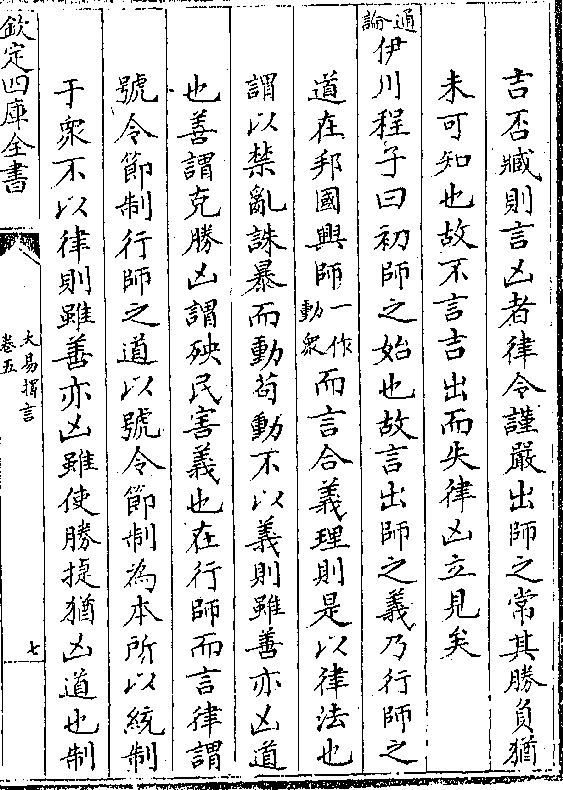 吉否臧則言凶者律令謹嚴出師之常其勝負猶
未可知也故不言吉出而失律凶立見矣
通論
伊川程子曰初師之始也故言出師之義乃行師之
道在邦國興師一作動衆而言合義理則是以律法也
謂以禁亂誅暴而動苟動不以義則雖善亦凶道
也善謂克勝凶謂殃民害義也在行師而言律謂
號令節制行師之道以號令節制為本所以統制
于衆不以律則雖善亦凶雖使勝㨗猶凶道也制
欽定四庫全書
大易擇言
卷五
七